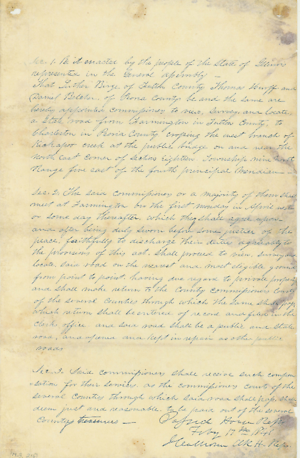 Sec. 1. Be it enacted by the people of the State of Illinois
represented in the General Assembly —
That Luther Birge, of Fulton County Thomas Huff and
Daniel Belcher, of Peoria County be and the same are
hereby appointed commissioners to view, survey and locate
a State road from Farmington in Fulton County, to
Charleston in Peoria County crossing the west branch of
Kickapoo creek at the public bridge on and near the
north east corner of section Eighteen Township nine North
Range five east of the fourth principal meridian —
Sec. 2. The said commissioners or a majority of them shall
meet at Farmington on the first monday in
or some day thereafter, which they shall agree upon
and after being duly sworn before some justice of the
peace, faithfully to discharge their duties agreeably to
the provisions of this act. Shall proceed to view, survey and
locate said road on the nearest and most eligible ground
from point to point, having due regard to private property
and shall make return to the County commissioners courts
of the several Counties through which the same shall pass
which return shall be entered of record and filed in the
clerks office and said road shall be a public and state
road, and opened and kept in repair as other public
roads
Sec. 3. Said commissioners shall receive such compen
sation for their services as the commissioners courts of the
several counties through which said road shall pass shall
deem just and reasonable. To be paid out of the several
County treasuries —